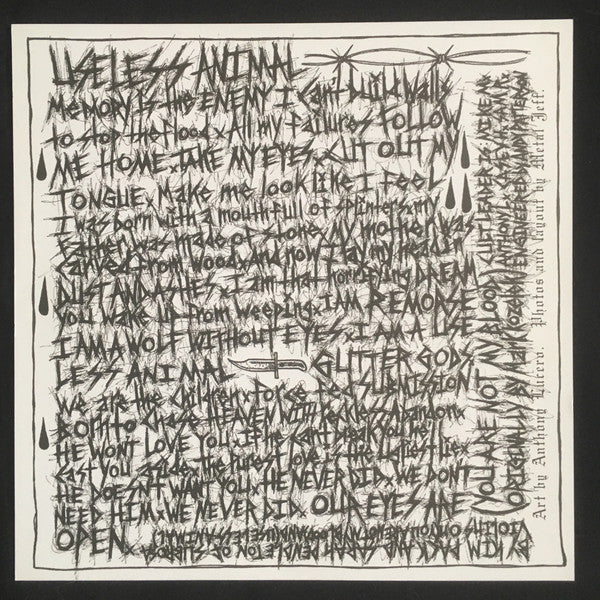 USELESS ANIMAL
MEMORY IS THE ENEMY I CAN'T BUILD WALLS
TO STOP THE FLOOD x ALL MY FAILURES FOLLOW
ME HOME x TAKE MY EYES x CUT OUT MY
TONGUE x MAKE ME LOOK LIKE I FEEL
I WAS BORN WITH A MOUTHFULL OF SPLINTERS x MY
FATHER WAS MADE OF STONE x MY MOTHER WAS
CARVED FROM WOOD x AND NOW I LAY MY HEAD IN
DUST AND ASHES x I AM THAT HORRIFYING DREAM
YOU WAKE UP FROM WEEPING x I AM REMORSE
I AM A WOLF WITHOUT EYES x I AM A USE
LESS ANIMAL
GUTTER GODS
WE ARE THE CHILDREN x FORCE FED SUBMISSION
BORN TO CHASE HEAVEN WITH RECKLESS ABANDON x
HE WONT LOVE YOU x IF HE CANT BREAK YOU HE'LL
CAST YOU ASIDE x THE PUREST LOVE IS THE UGLIEST LIE x
HE DOESN'T WANT YOU x HE NEVER DID x WE DON'T
NEED HIM x WE NEVER DID x OUR EYES ARE
OPEN x
(YOU ARE NOT MY BLOOD) CULT LEADER IS:
ORIGINALLY BY MARK KOZELEK ENGINEERED
Art by Anthony Lucero. Photos and layout by Metal Jeff.
BY KIM PACK AND SARAH PENDLETON OF SUBROSA